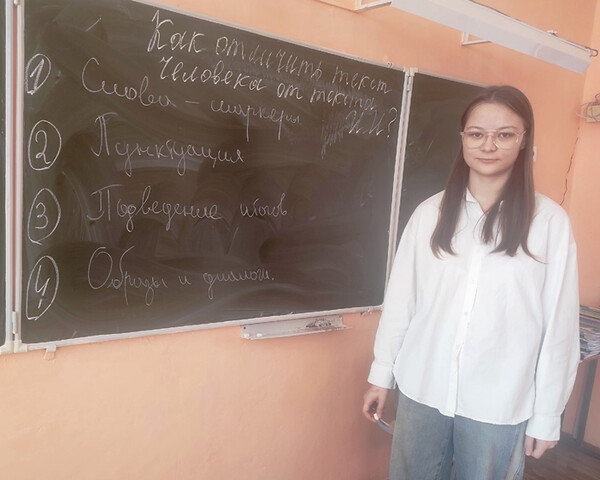 Как отличить текст
человека от текста
ИИ?
1 Слова - маркеры
2 Пунктуация
3 Подведение итогов
4 Образы и диалоги.